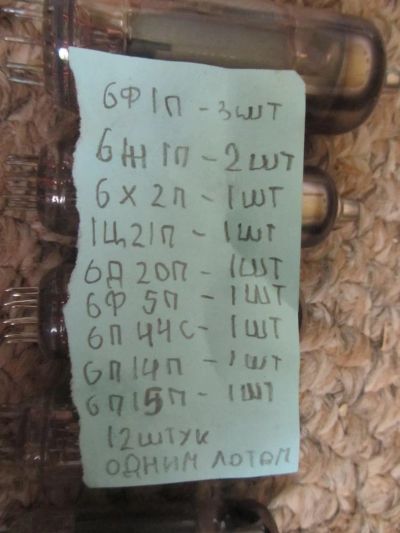 6Ф1П - 3шт
6Ж1П - 2шт
6Х2П - 1шт
1Ц21П - 1шт
6Д20П - 1шт
6Ф5П - 1шт
6П44С - 1шт
6П14П - 1шт
6П15П - 1шт
12 штук
одним лотом